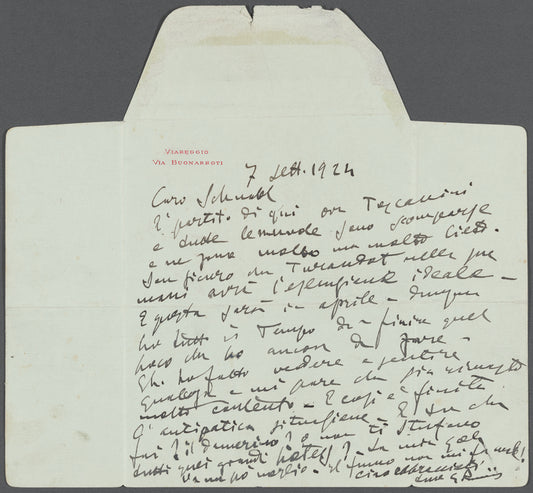 VIAREGGIO
VIA BUONARROTI
7 sett. 1924
Caro Schnabl
È partito di qui ora Toscanini
e tutte le nuvole sono scomparse
e ne sono molto ma molto lieto.
Son sicuro che Turandot nelle sue
mani avrà l'esecuzione ideale –
E questa sarà in aprile – dunque
ho tutto il tempo di finire quel
poco che ho ancora da fare –
Gli ho fatto vedere e sentire
qualcosa – e mi pare che sia rimasto
molto contento – E così è finita
l'antipatica situazione – E Lei che
fa? il
tutti quei grandi hotels? – La mia gola
va un po' meglio – il fumo non mi fa male!
ciao